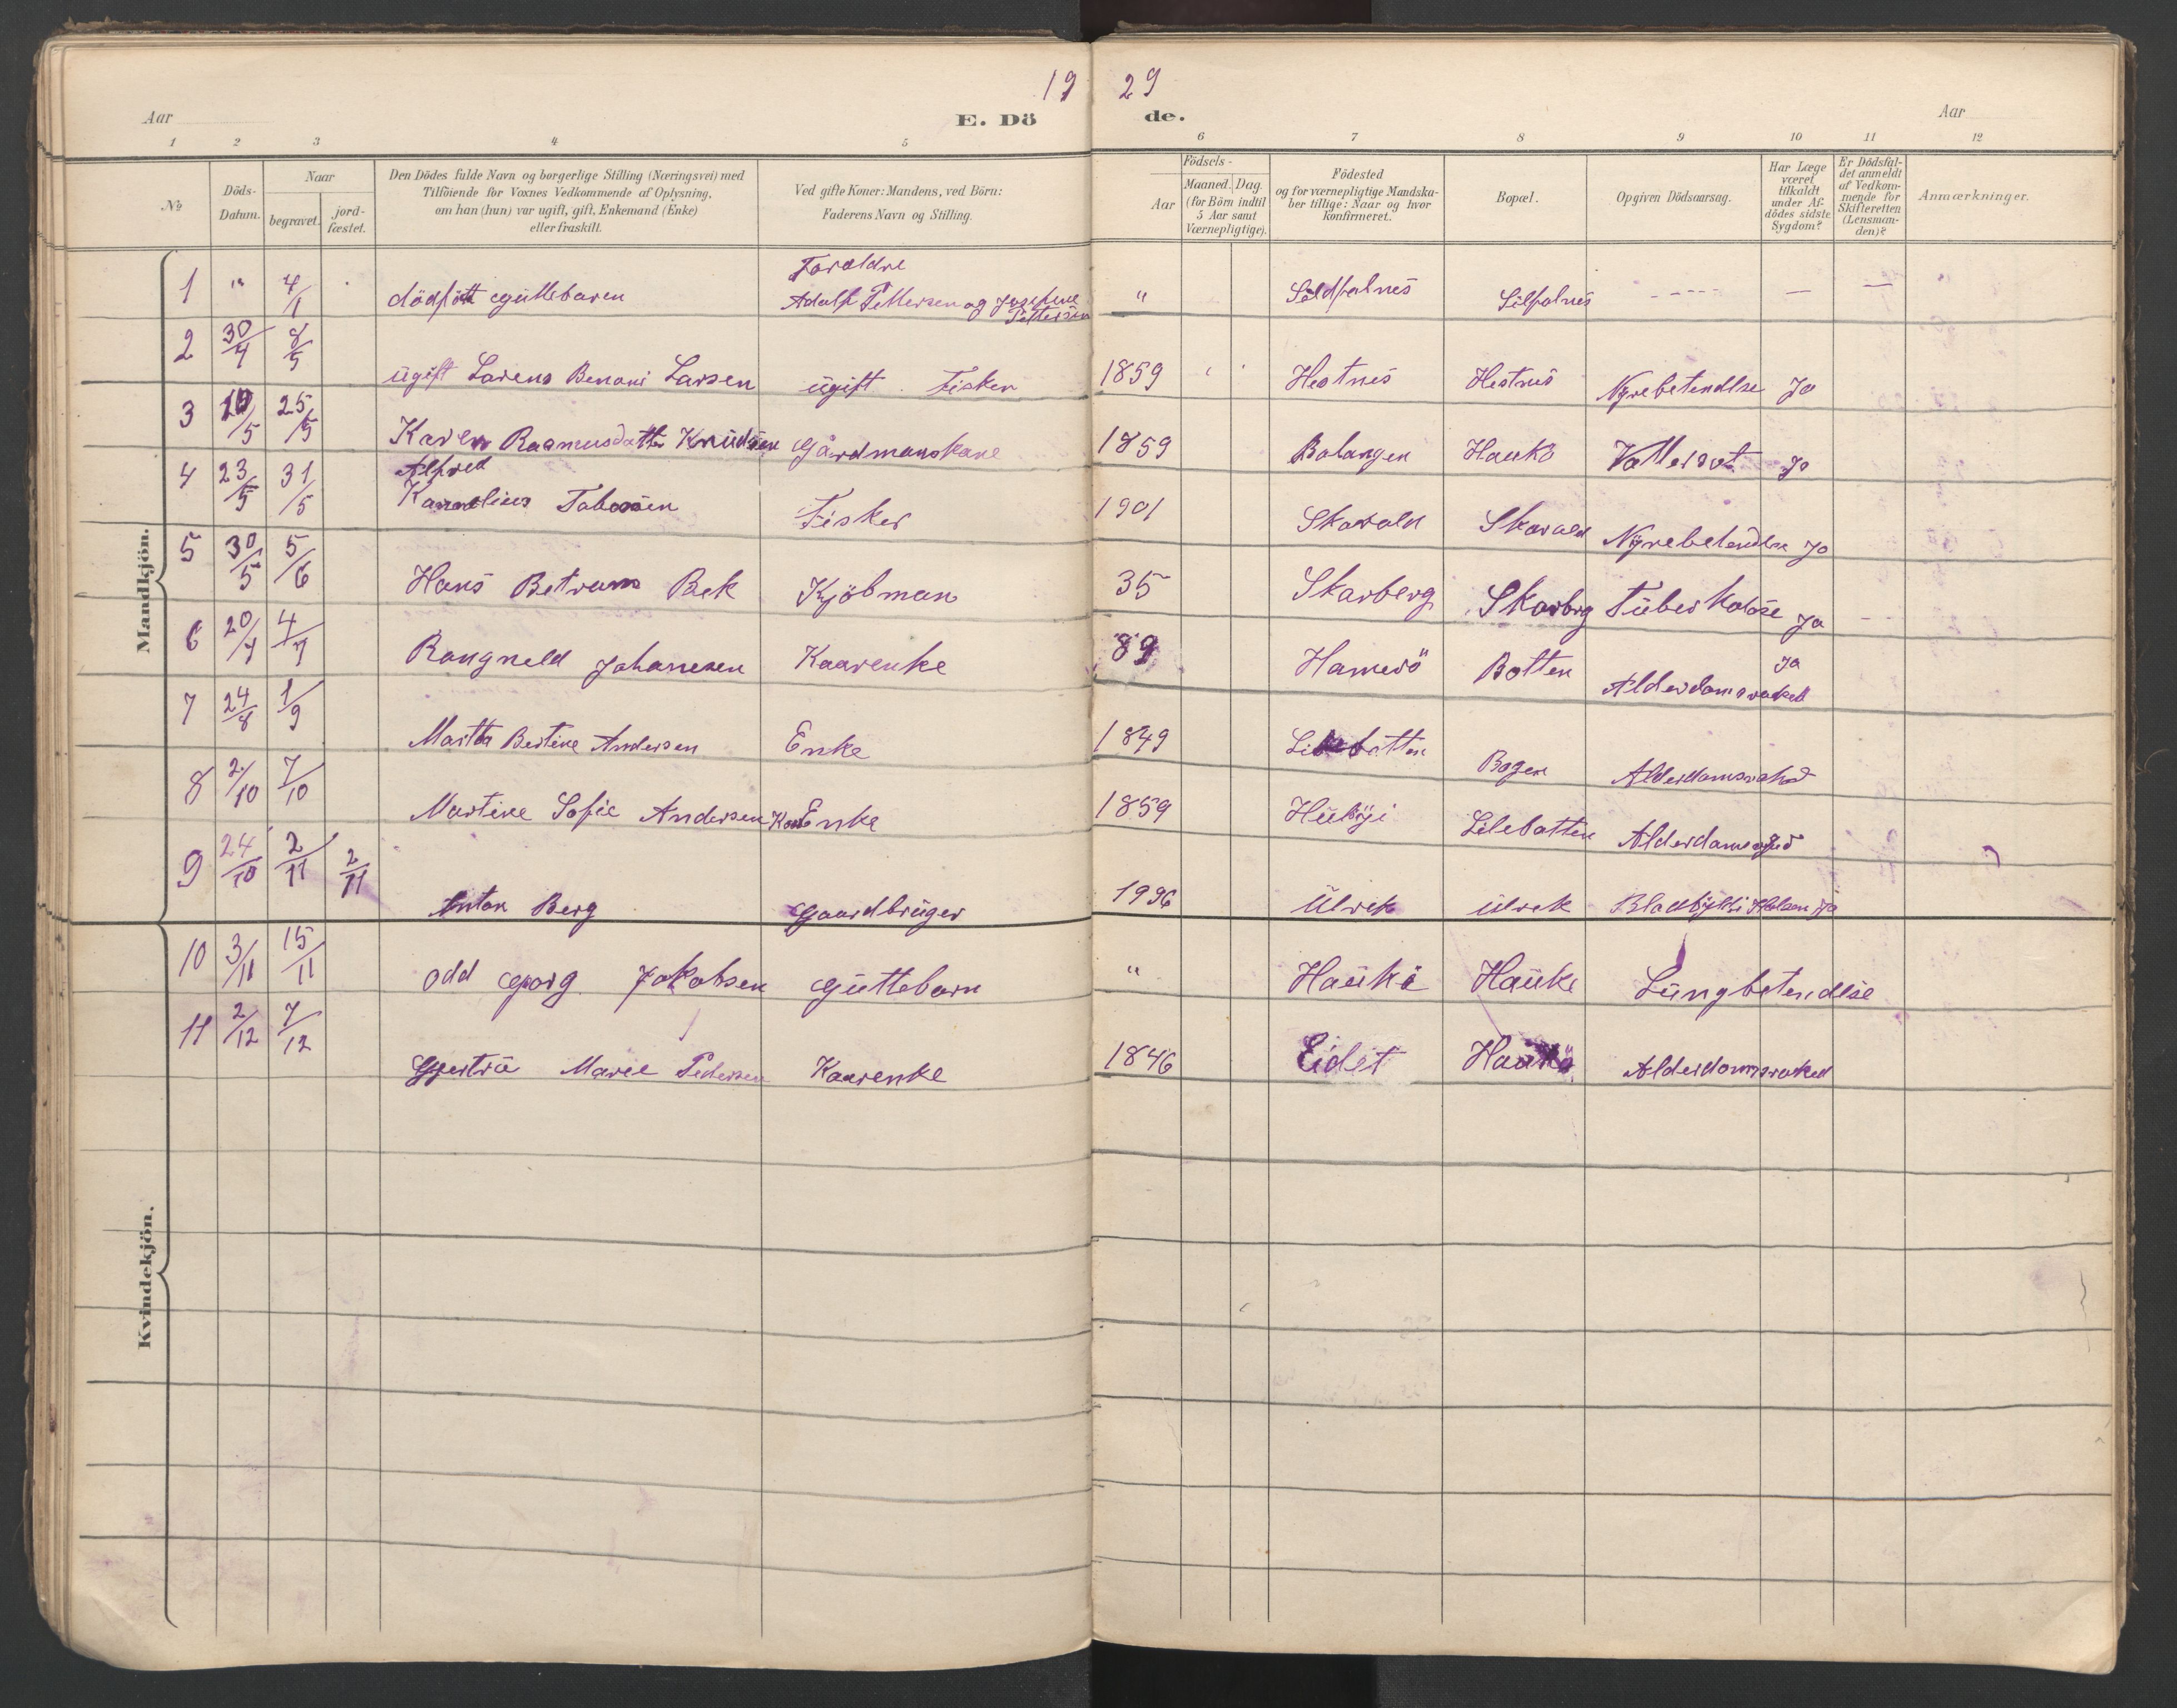 19 29
Aar E. Dö de. Aar
1 2 3 4 5 6 7 8 9 10 11 12
№
Döds-
Datum.
Naar
begravet.
jord-
fæstet.
Den Dödes fulde Navn og borgerlige Stilling (Næringsvei) med
Tilföiende for Voxnes Vedkommende af Oplysning,
om han (hun) var ugift, gift, Enkemand (Enke)
eller fraskilt.
Ved gifte Koner: Mandens, ved Börn:
Faderens Navn og Stilling.
Födsels-
Aar
Maaned. Dag.
(for Börn indtil
5 Aar samt
Værnepligtige).
Födested
og for værnepligtige Mandska-
ber tillige: Naar og hvor
konfirmeret.
Bopæl.
Opgiven Dödsaarsag.
Har Læge
været
tilkaldt
under Af-
dödes sidste
Sygdom?
Er Dödsfal-
det anmeldt
af Vedkom-
mende for
Skifteretten
(Lensman-
den)?
Anmærkninger.
Mandkjön.
Foraldre
1 " 4/1 dödfött guttebaren Adolf Pettersen og Josefine " Sildpalnes Silpalnes ---- — —
Pettersen
2 30/4 8/5 ügift Larens Benoni Larsen ügift . Fisker 1859 Hestnes Hestnes Nyrebetendlse Ja
3 19/5 25/5 Karen Rasmusdatter Knüdsen Gårdmanskane 1859 Balangen Haukö Vattersot Ja
Alfred
4 23/5 31/5 Karnelius Tobosen Fisker 1901 Skavald Skavald Nyrebetendlse Ja
5 30/5 5/6 Hans Betrum Bek Kjöbman 35 Skarberg Skarbrg Tüberkolose Ja
6 20/7 4/7 Rangneld Johanesen Kaarenke 89 Hamerö Botten Alderdomsvaked Ja
7 24/8 1/9 Martha Bertine Andersen Enke 1849 Botten Bogen Alderdomsvaked
8 2/10 7/10 Martine Sofie Andersen Kaar Enke 1859 Lilebatten
9 24/10 2/11 2/11 Anton Berg Gaardbrüger 1996 Ülvek ülvek Ja
10 3/11 15/11 odd georg Jakobsen Güttebarn " Haükö Haüke Lüngbetendlse
11 2/12 7/12 Gjertrü Marie Pedersen Kaarenke 1846 Eidet Haukö Alderdomsvaked
Kvindekjön.